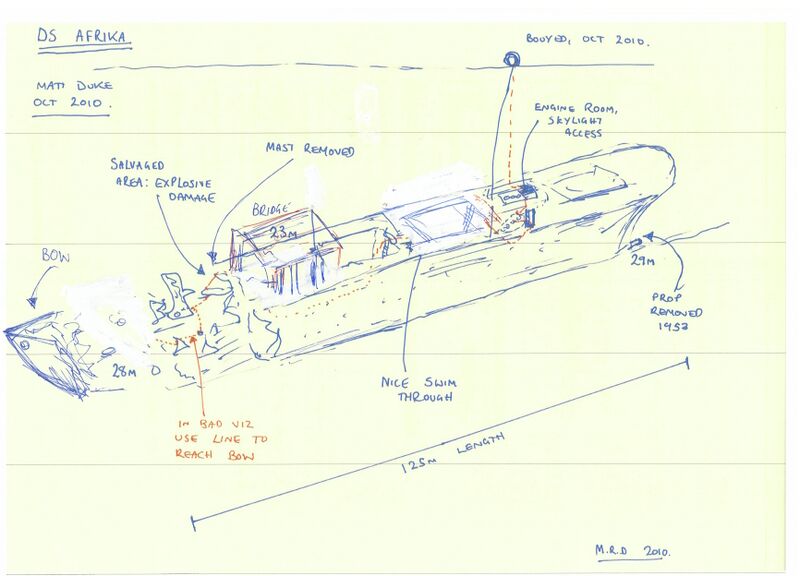 DS AFRIKA.
BOUYED, OCT 2010.
MATT DUKE
OCT 2010.
ENGINE ROOM,
SKYLIGHT
ACCESS
MAST REMOVED
SALVAGED
AREA: EXPLOSIVE
DAMAGE
BRIDGE
23M
BOW
29M
PROP
REMOVED
1953
28M
NICE SWIM
THROUGH
IN BAD VIZ
USE LINE TO
REACH BOW
125M LENGTH
M.R.D 2010.